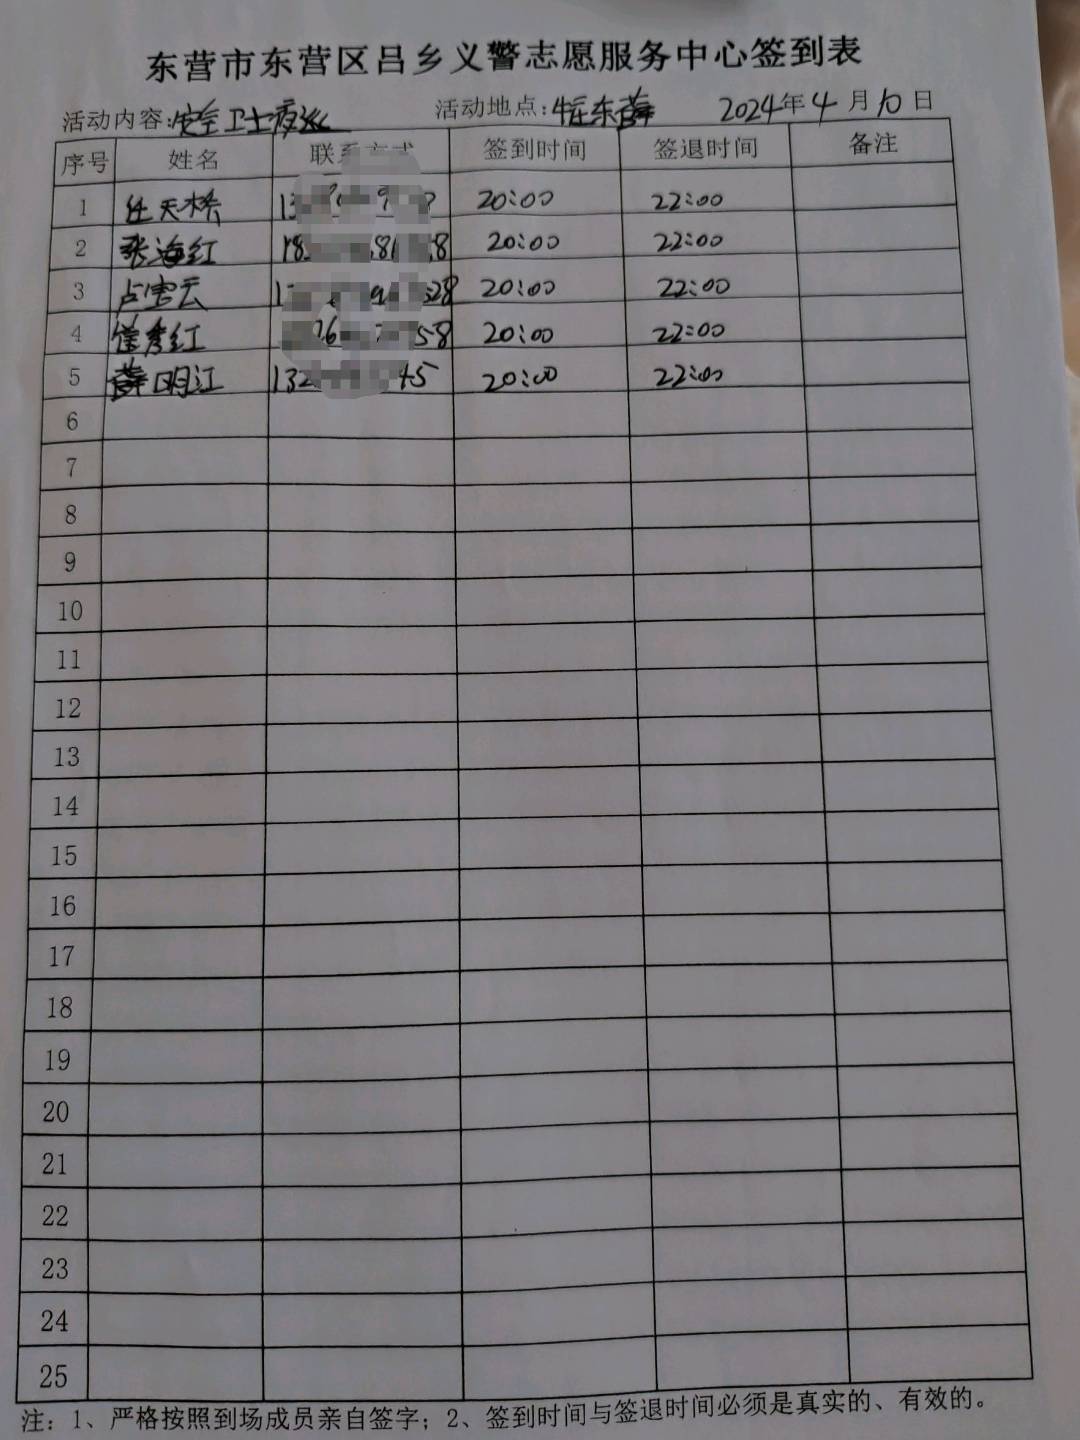 东营市东营区吕乡义警志愿服务中心签到表
活动内容:安全卫士夜巡 活动地点:东薛 2024年4月10日
序号 姓名 联系方式 签到时间 签退时间 备注
1 任天桥 20:00 22:00
2 张海红 20:00 22:00
3 卢宝云 20:00 22:00
4 秀红 20:00 22:00
5 薛明江 20:00 22:00
6
7
8
9
10
11
12
13
14
15
16
17
18
19
20
21
22
23
24
25
注:1、严格按照到场成员亲自签字;2、签到时间与签退时间必须是真实的、有效的。